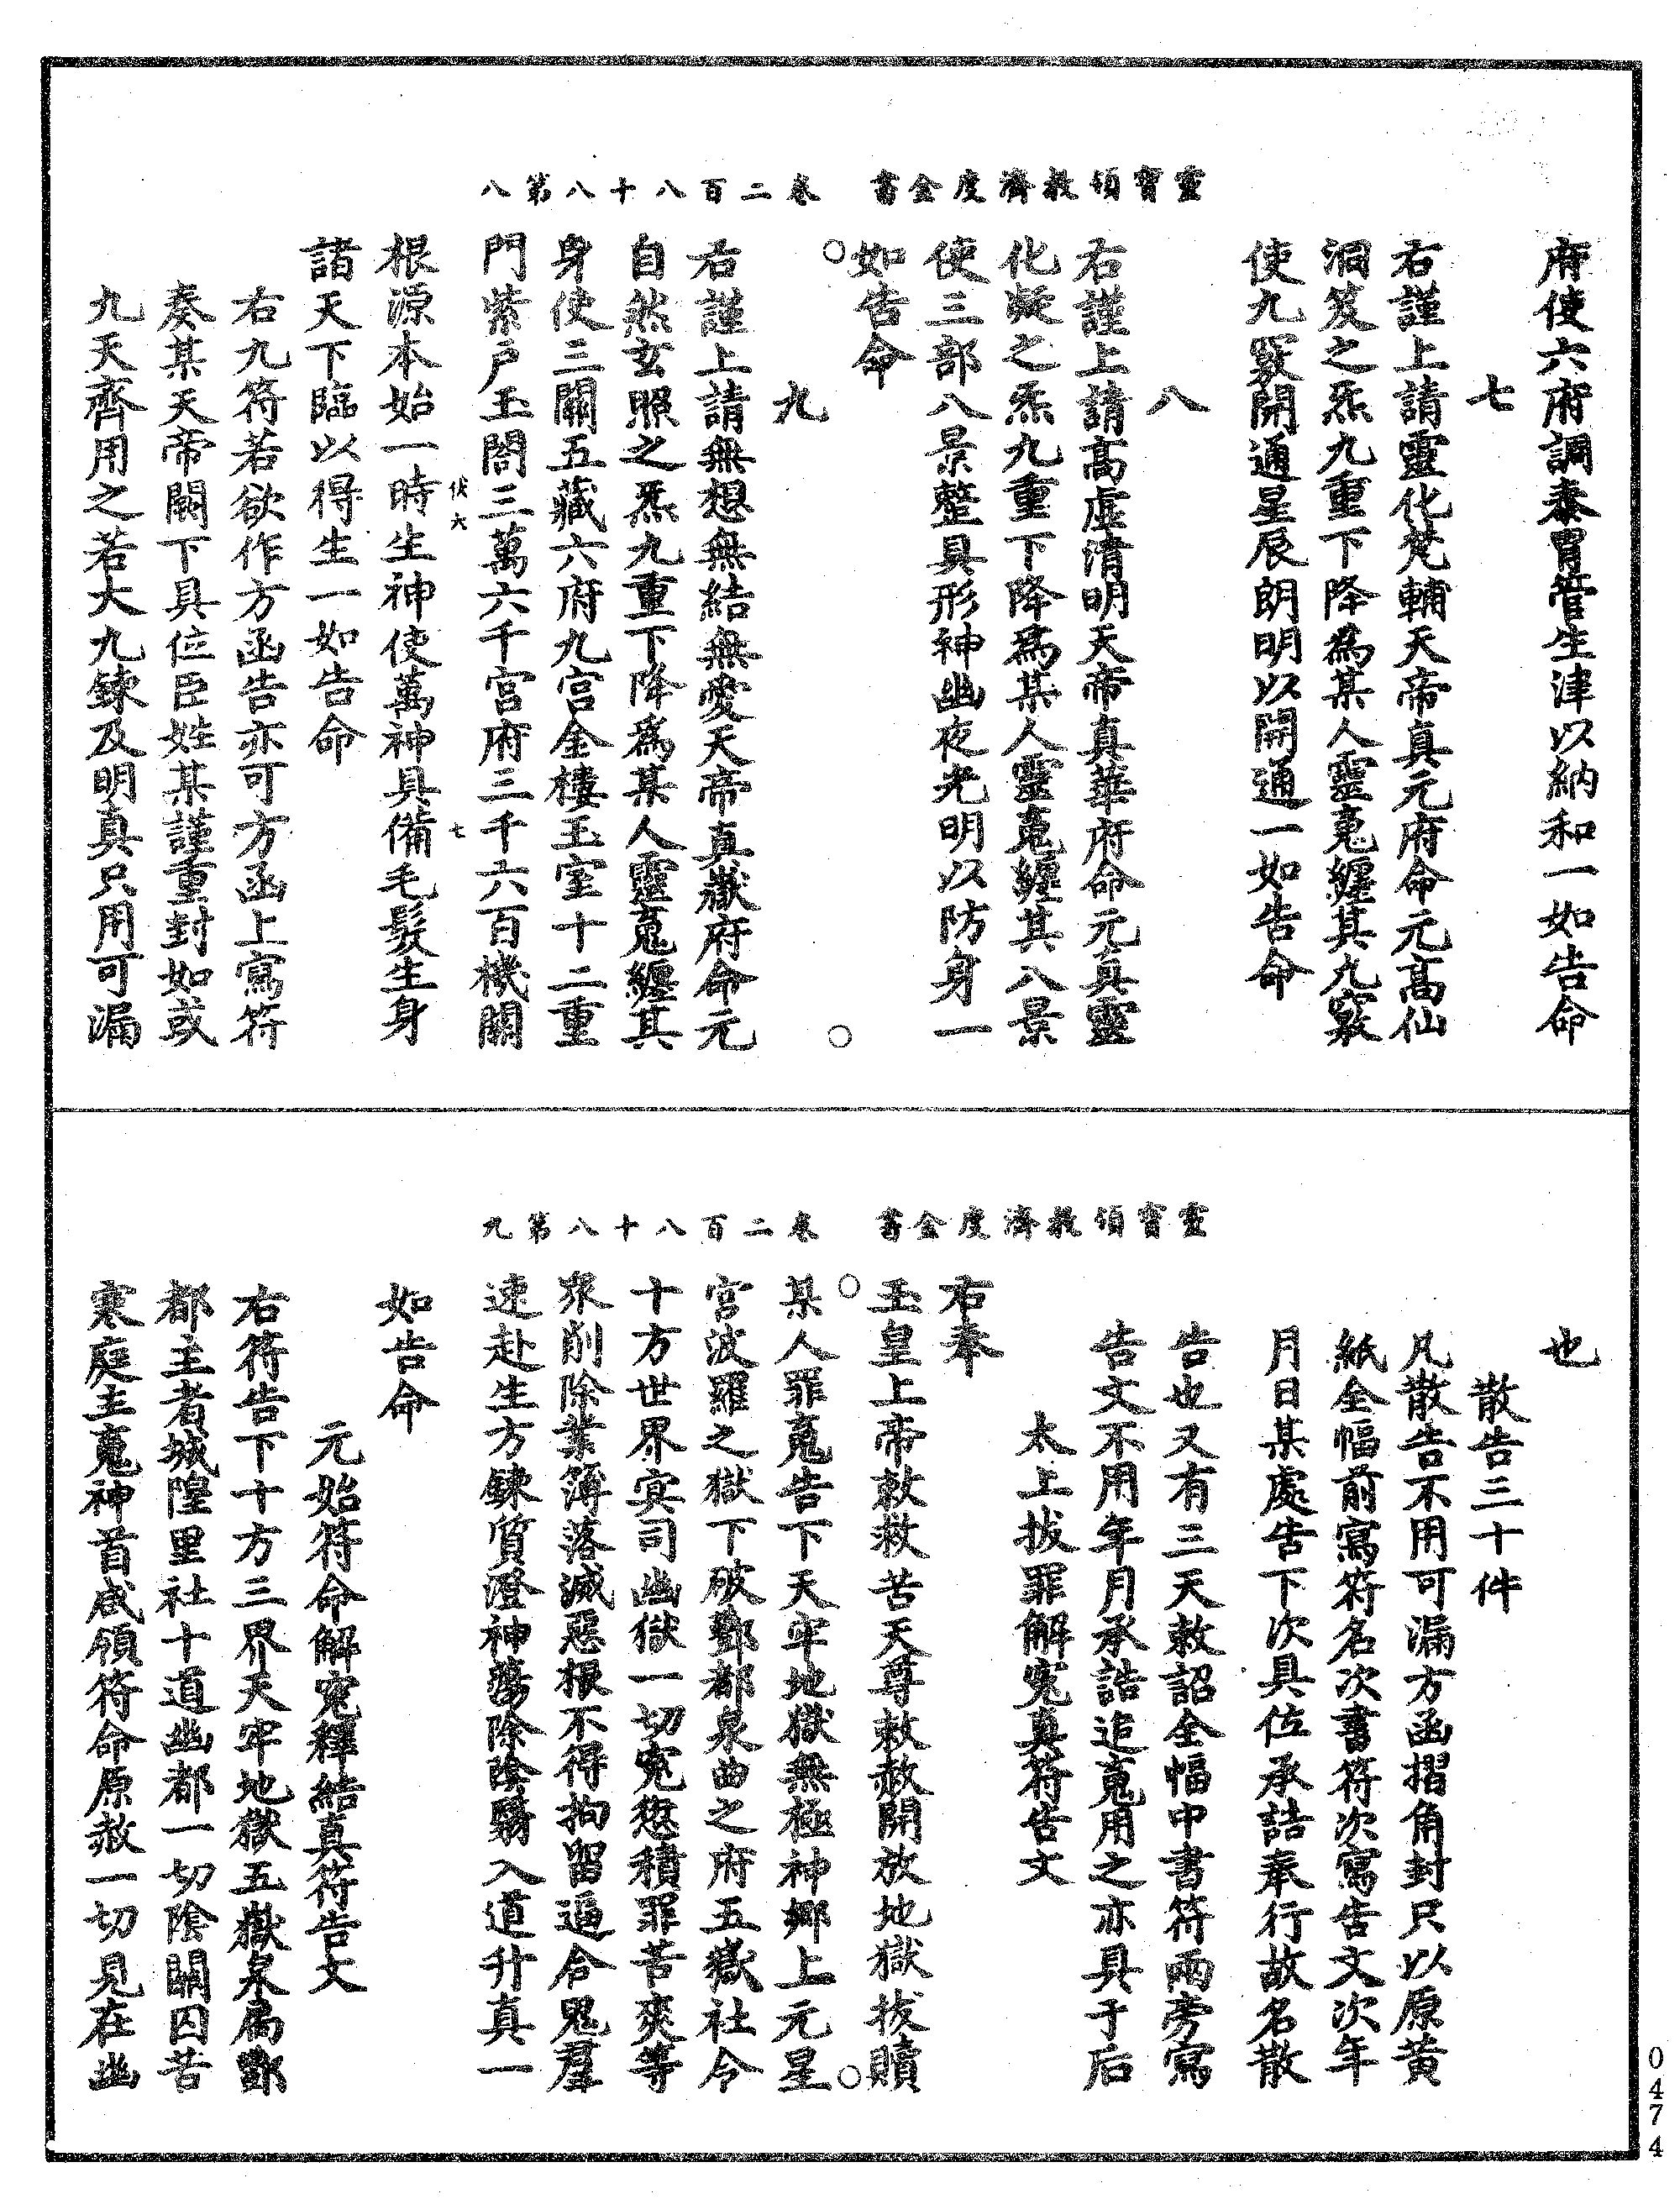 靈寶領教濟度金書　卷二百八十八第八
府使六府調泰胃管生津以納和一如告命
七
右謹上請靈化梵輔天帝真元府命元高仙
洞笈之炁九重下降為某人靈䰟纏其九竅
使九竅開通星辰朗明以開通一如告命
八
右謹上請高虛清明天帝真華府命元真靈
化凝之炁九重下降為某人靈䰟纏其八景
使三部八景整具形神幽夜光明以防身一
如告命
九
右謹上請無想無結無愛天帝真嶽府命元
自然玄照之炁九重下降為某人靈䰟纏其
身使三關五藏六府九宮金樓玉室十二重
門紫戶玉閤三萬六千宮府三千六百機關
伏六　七
根源本始一時生神使萬神具備毛髮生身
諸天下臨以得生一如告命
右九符若欲作方函告亦可方函上寫符
奏某天帝闕下具位臣姓某謹重封如或
九天齊用之若大九鍊及明真只用可漏
靈寶領教濟度金書　卷二百八十八第九
也
散告三十件
凡散告不用可漏方函摺角封只以原黃
紙全幅前寫符名次書符次寫告文次年
月日某處告下次具位承誥奉行故名散
告也又有三天敕詔全幅中書符兩旁寫
告文不用年月承誥追䰟用之亦具于后
太上拔罪解冤真符告文
右奉
玉皇上帝敕救苦天尊敕赦開放地獄拔贖
某人罪䰟告下天牢地獄無極神鄉上元星
宮波羅之獄下破酆都泉曲之府五嶽社令
十方世界冥司幽獄一切冤愆積罪苦爽等
眾削除業簿落滅惡根不得拘留遏合鬼羣
速赴生方鍊質澄神蕩除陰翳入道升真一
如告命
元始符命解冤釋結真符告文
右符告下十方三界天牢地獄五嶽泉扃酆
都主者城隍里社十道幽都一切陰關囚苦
寒庭主䰟神首咸領符命原赦一切見在幽
0474